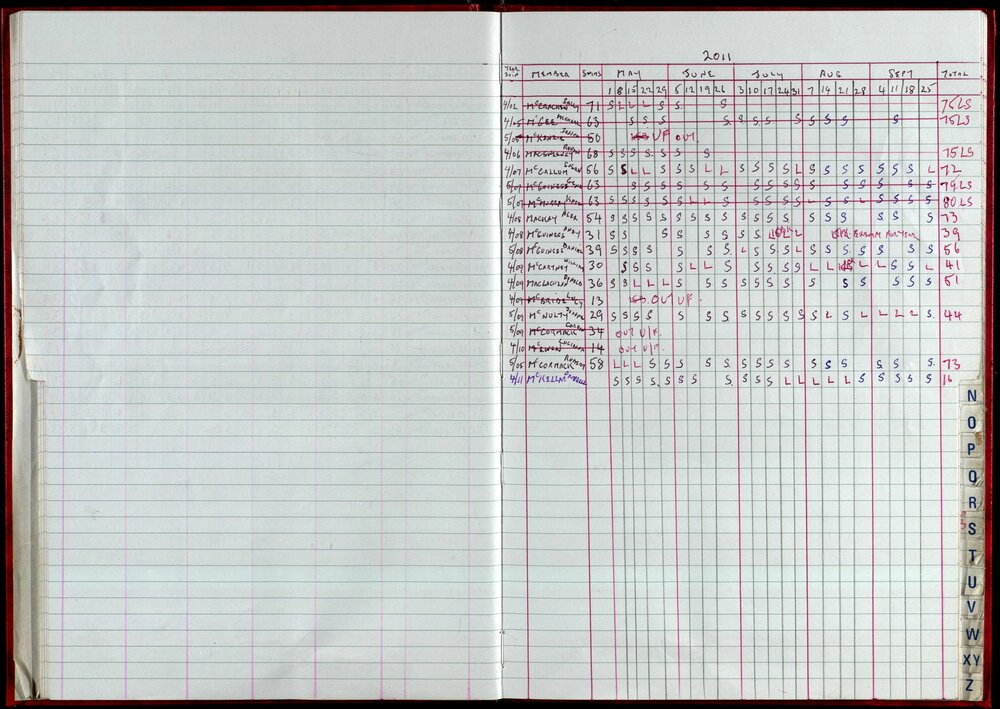 2011
YEAR JOINT MEMBER SWIMS MAY JUNE JULY AUG SEPT TOTAL
1 8 15 22 29 5 12 19 26 3 10 17 24 31 7 14 21 28 4 11 18 25
4/02 McCRACKEN 71 S L L L S S S 75LS
4/05 McGEE MICHAEL 63 S S S S S S S S S S S S 75LS
5/05 McKENZIE 50 UF OUT
4/06 ROWAN 68 S S S S S S S S 75LS
4/07 McCALLUM SUSAN 56 S S L L S S S L L S S S S L S S S S S S S L 72
5/07 McGUINESS GENE 63 S S S S S S S S S S S S S S S S S S 79LS
5/07 63 S S S S S S L L S S S S S S L S L S S S S S 80LS
4/08 MACKAY ALEX 54 S S S S S S S S S S S S S S S S S S 73
4/08 McGUINESS ANDY 31 S S S S S S S L L 39
5/08 McGUINESS DANIEL 39 S S S S S S S L S S S L S S S S S S S S 56
4/09 McCARTNEY WILLIAM 30 S S S S L L S S S S S L L L L S S L 41
4/09 MACLACHLAN 36 S S L L L S S S S S S S S S S S S S 51
4/09 McBRIDE LUCY 13 OUT UF.
5/09 McNULTY 29 S S S S S S S S S S S S S L S L L L L S 44
5/09 McCORMACK 34 OUT U/F.
4/10 14 OUT U/F.
5/05 McCORMACK ROBERT 58 L L L S S S S S S S S S S S S S S S 73
4/11 McKELLAR 16
N
O
P
Q
R
S
T
U
V
W
XY
Z